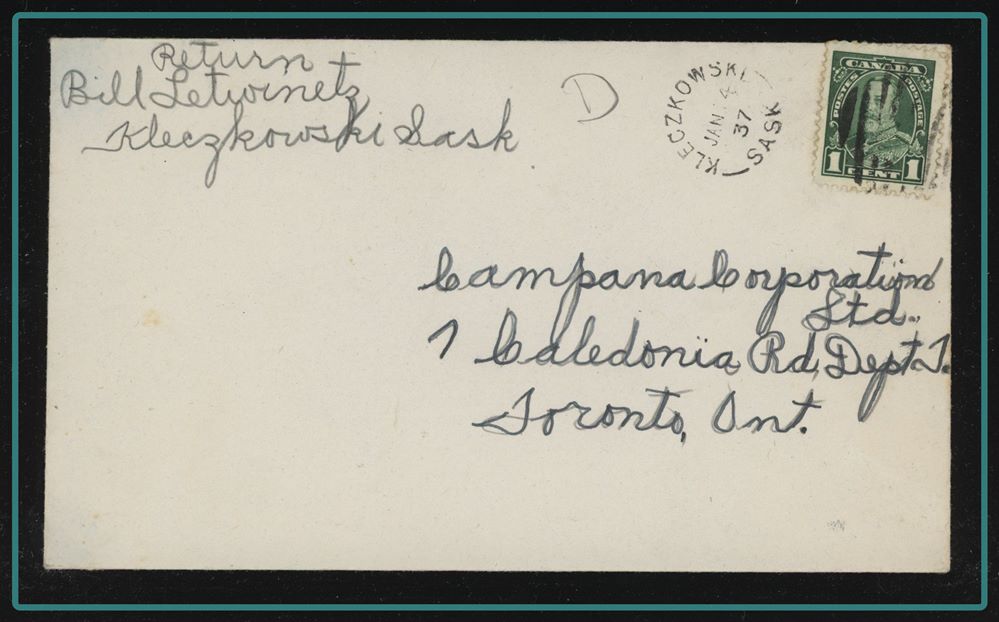 Return
Bill Letwinetz
Kleczkowski Sask
D
KLECZKOWSKI
JAN 4
37
SASK
CANADA
POSTES POSTAGE
1 CENT 1
Campana Corporation
Ltd.
7 Caledonia Rd, Dept. T.
Toronto, Ont.